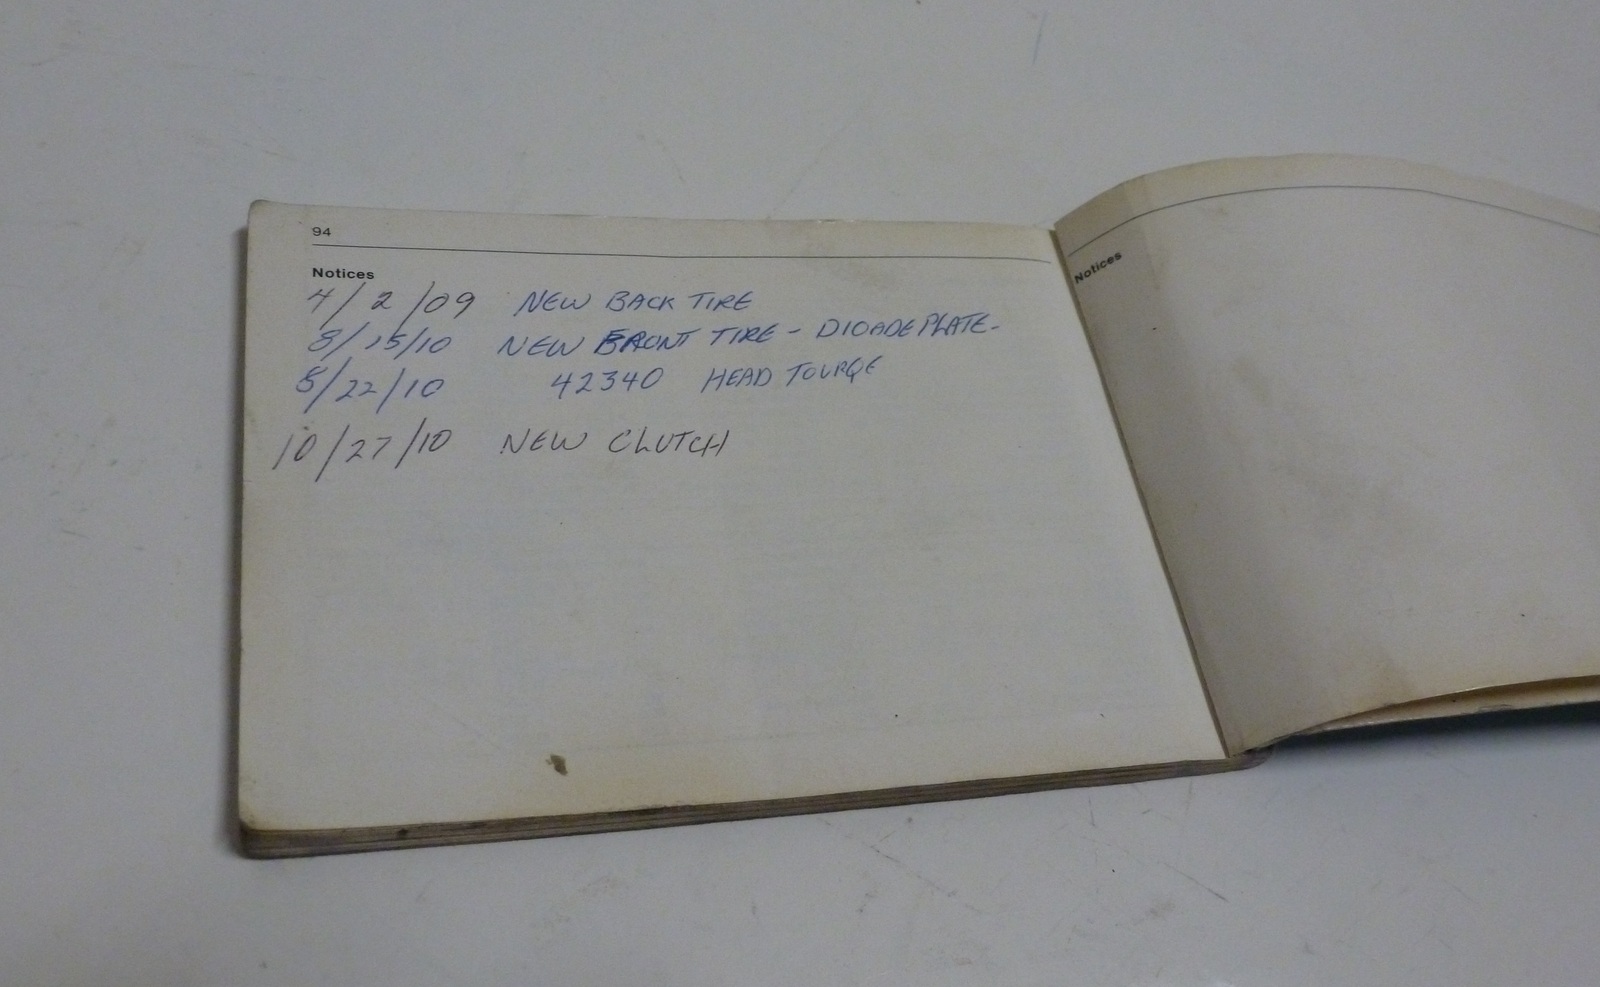 94
Notices
4/2/09 NEW BACK TIRE
8/15/10 NEW FRONT TIRE - DIOADEPLATE-
8/22/10 42340 HEAD TOURQE
10/27/10 NEW CLUTCH
Notices